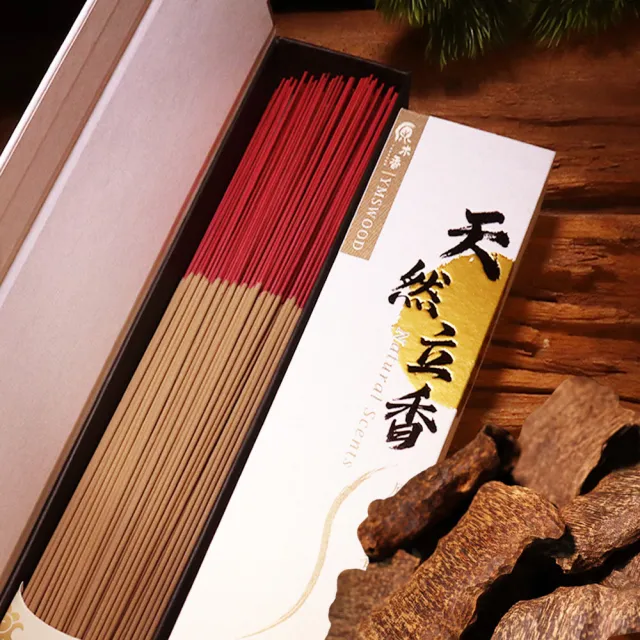 YMSWOOD
天然立香
Natural Scents